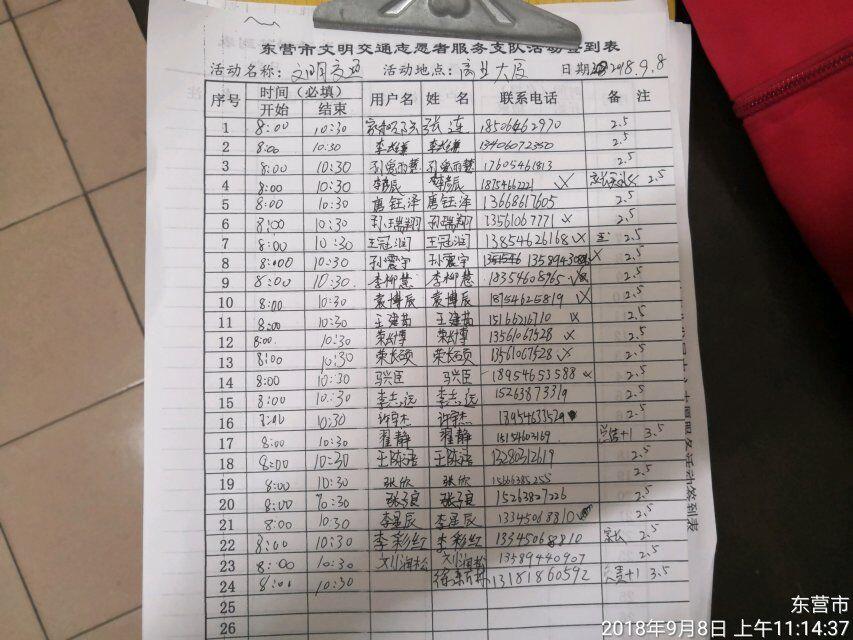 东营市文明交通志愿者服务支队活动签到表
活动名称: 文明交通 活动地点: 商业大厦 日期 2018.9.8
序号 时间（必填） 用户名 姓 名 联系电话 备 注
开始 结束
1 8:00 10:30 张连 18506462970 2.5
2 8:00 10:30 13406072350 2.5
3 8:00 10:30 17605461813 2.5
4 8:00 10:30 李彦辰 李彦辰 18754662221 2.5
5 8:00 10:30 唐钰泽 唐钰泽 13668617605 2.5
6 8:00 10:30 孙瑞翔 孙瑞翔 13561067771 2.5
7 8:00 10:30 王冠润 王冠润 13854626168 2.5
8 8:00 10:30 孙震宇 孙震宇 2.5
9 8:00 10:30 李柳慧 李柳慧 18354608965 2.5
10 8:00 10:30 袁博辰 袁博辰 18754625819 2.5
11 8:00 10:30 王建茹 王建茹 15166216710 2.5
12 8:00 10:30 荣长博 荣长博 13561067528 2.5
13 8:00 10:30 荣长硕 荣长硕 13561067528 2.5
14 8:00 10:30 马兴臣 马兴臣 18954653588 2.5
15 8:00 10:30 李志远 李志远 15263873319 2.5
16 8:00 10:30 许宇杰 许宇杰 2.5
17 8:00 10:30 翟静 翟静 15154603169 总结+1 3.5
18 8:00 10:30 13280312619 2.5
19 8:00 10:30 张欣 张欣 15666385255 2.5
20 8:00 10:30 张子良 张子良 15263827226 2.5
21 8:00 10:30 李星辰 李星辰 13345068810 2.5
22 8:00 10:30 李彩红 李彩红 13345068810 家长 2.5
23 8:00 10:30 刘润松 刘润松 13589440907 2.5
24 8:00 10:30 13181860592 负责+1 3.5
25
26
东营市
2018年9月8日 上午11:14:37